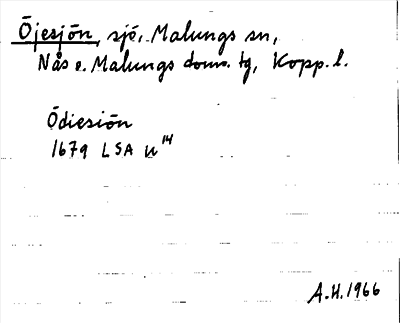 Öjesjön, sjö, Malungs sn,
Nås o. Malungs doms. tg, Kopp. l.
Ödiesiön
1679 LSA U 14
A.H. 1966